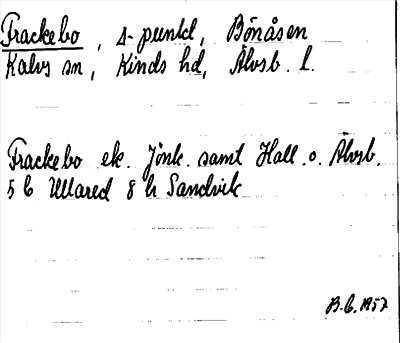 Frackebo, s-punkt, Bönåsen
Kalvs sn, Kinds hd, Älvsb. l.
Frackebo ek. Jönk. samt Hall. o. Älvsb.
5 C Ullared 8 h Sandvik
B.C. 1957